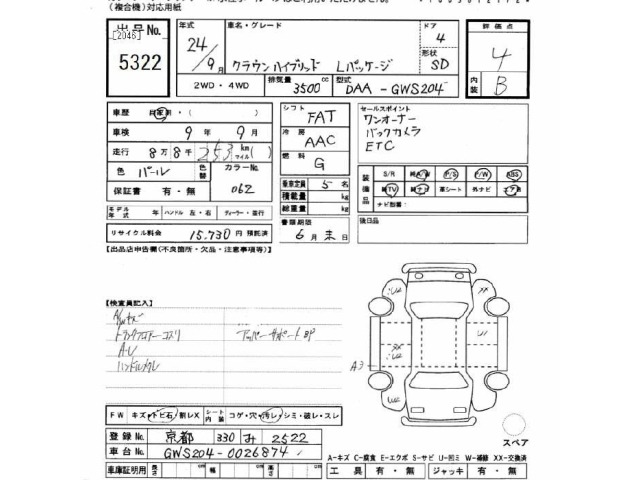 (複合機)対応用紙
出品No.
[2046]
5322
年式
24/9月
車名・グレード
クラウンハイブリッド Lパッケージ
ドア
4
形状
SD
2WD・4WD
排気量
3500cc
型式
DAA-GWS204
評価点
4
内装
B
車歴 自家用・( )
車検 9年 9月
走行 8万8千253km マイル( )
色 パール
色替
カラーNo.
062
保証書 有・無
シフト
FAT
冷房
AAC
燃料
G
乗車定員 5名
積載量 kg
総重量 kg
書類期限
6月末日
セールスポイント
ワンオーナー
バックカメラ
ETC
装備品
S/R
純A/W
P/S
P/W
ABS
純TV
純ナビ
革シート
外ナビ
エア B
ナビ型番:
後日品
モデル年式 年 ハンドル 左・右 ディーラー・並行
リサイクル料金 15,730円 預託済
【出品店申告欄(不良箇所・欠品・注意事項等)】
【検査員記入】
A/Wキズ
トランクフロアー コスリ
アッパーサポートBP
A・U
ハンドルスレ
U2
U2
XX
XX
U1
A3
U2
FW キズ・トビ石・割レX
シート内装
コゲ・穴・汚レ・シミ・破レ・スレ
スペア
登録No. 京都 330 み 2522
車台No. GWS204-0026874
A-キズ C-腐食 E-エクボ S-サビ U-凹ミ W-補修 XX-交換済
車庫証明用 長さ cm 幅 cm 高さ cm
工具 有・無 ジャッキ 有・無